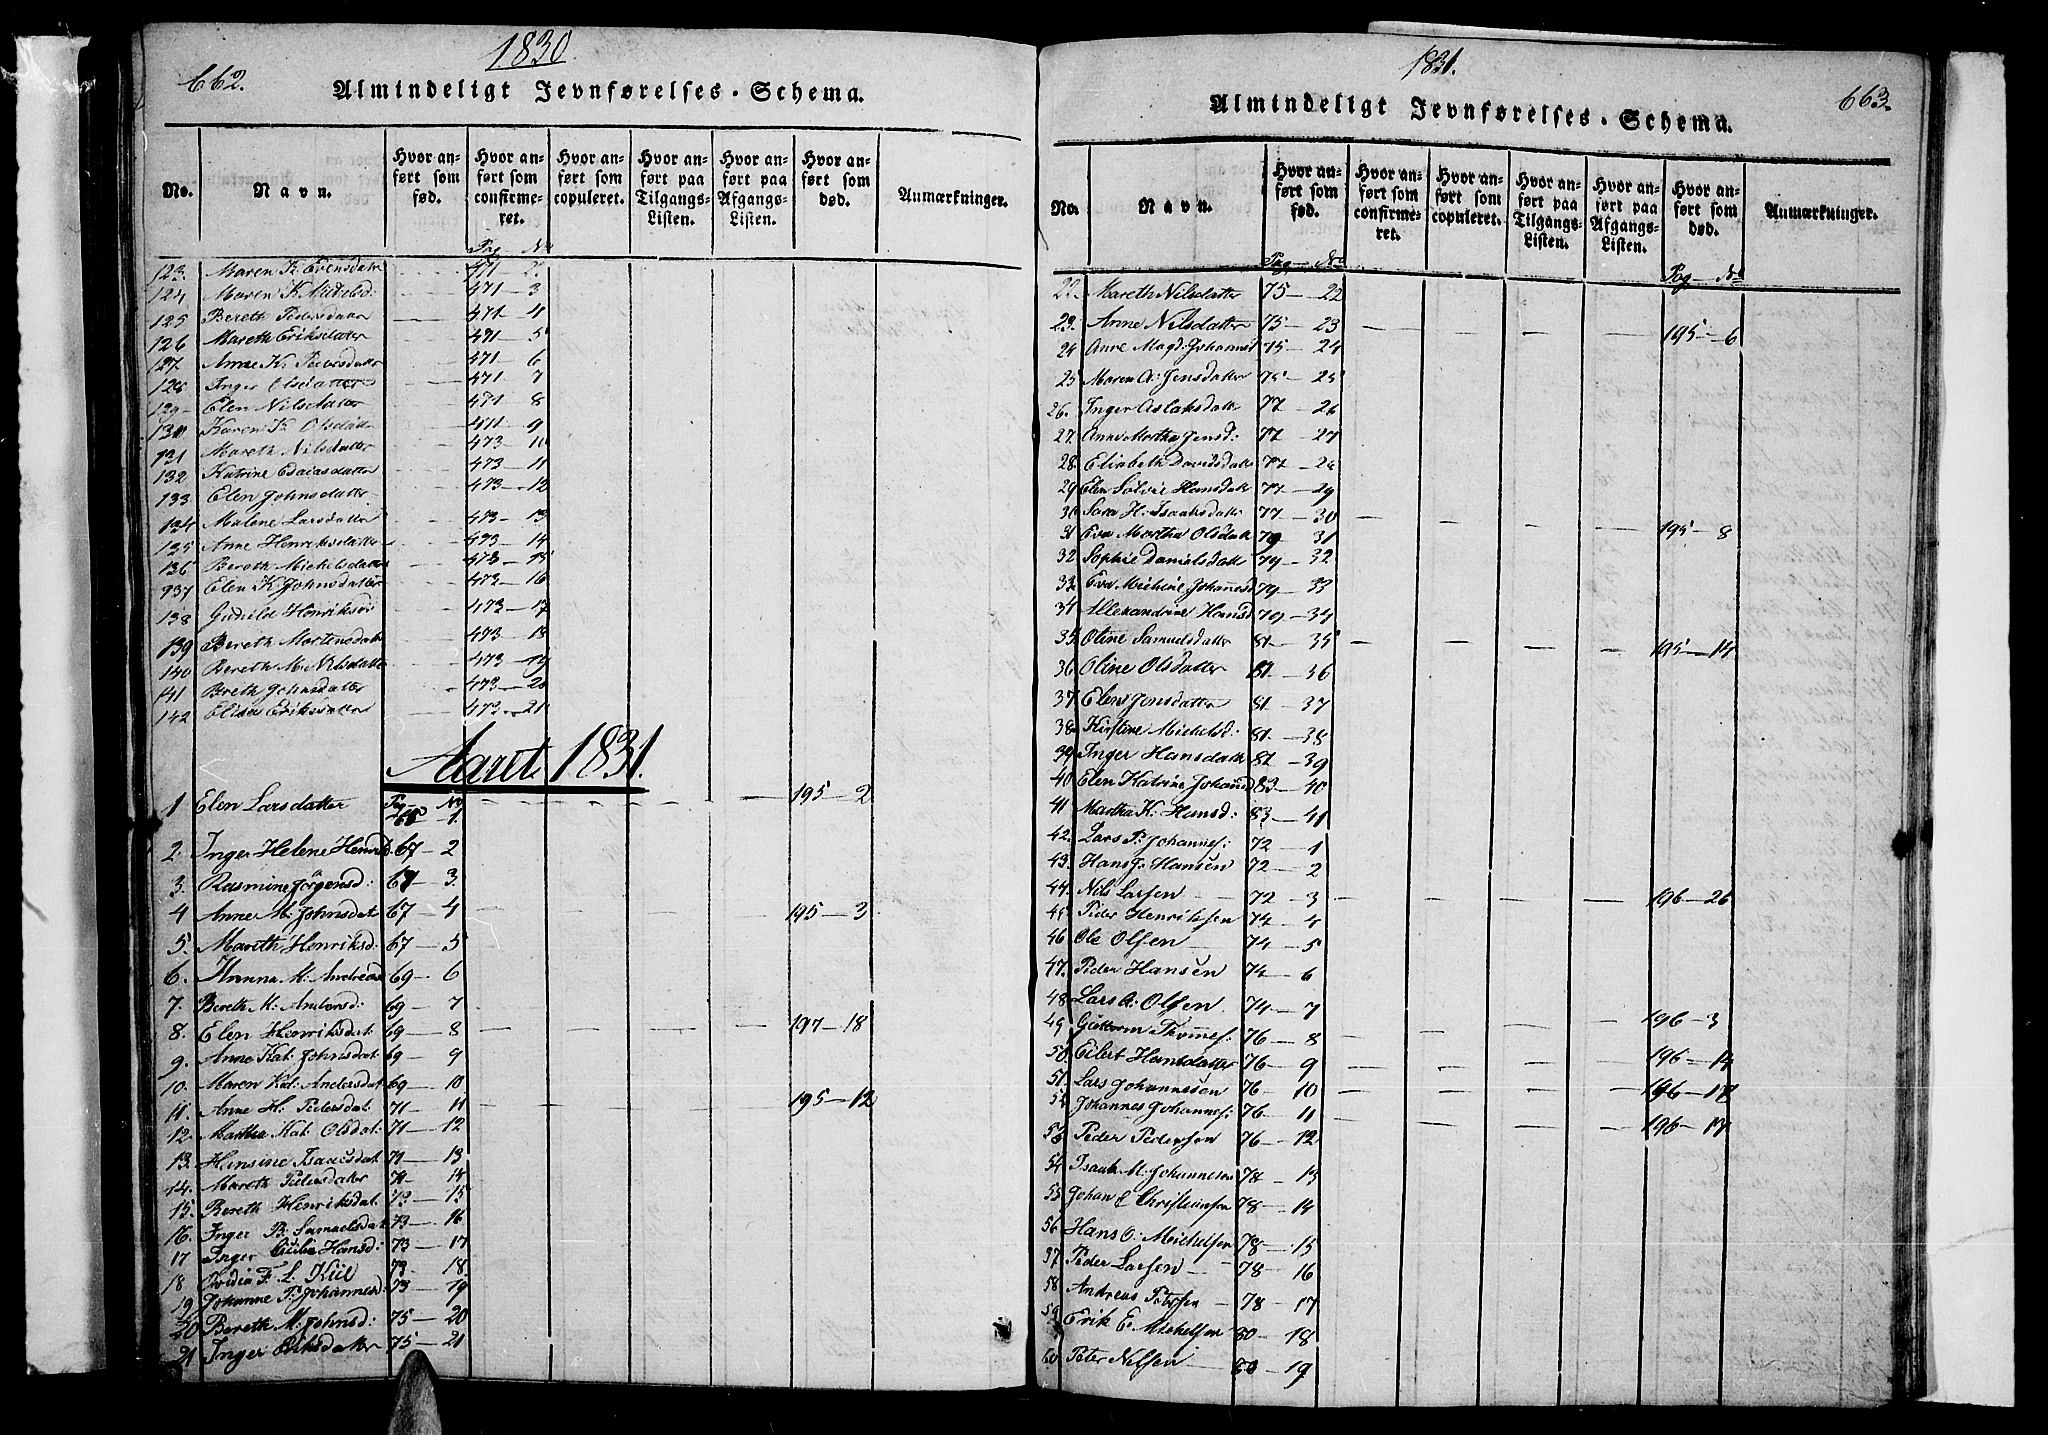 662.
1830
Almindeligt Jevnførelses-Schema.
No.
Navn.
Hvor anført som fød.
Hvor anført som confirmeret.
Hvor anført som copuleret.
Hvor anført paa Tilgangs-Listen.
Hvor anført paa Afgangs-Listen.
Hvor anført som død.
Anmærkninger.
Pag — No
123. Maren K. Evensdatr 471 — 2.
124 Maren K. Mikelsd: 471 — 3
125 Bereth Pedersdatr 471 — 4
126 Mareth Eriksdatter 471 — 5
127. Anne K. Pedersdatter 471 — 6
128 Inger Olsdatter 471 — 7
129 — Elen Nilsdatter 471 — 8
130 Karen K. Olsdatr 471 — 9
131 Mareth Nilsdatter 473 — 10
132 Katrine Esaiasdatter 473 — 11
133 Elen Johnsdatter 473 — 12
134 Malene Larsdatter 473 — 13
135 Anne Henriksdatter 473 — 14
136 Bereth Michelsdatter 473 — 15
137 Elen K. Johnsdatter 473 — 16
138 Gunild Henriksd: 473 — 17
139 Bereth Mortensdatr 473 — 18
140 Bereth M. Nilsdatter 473 — 19
141 Breth Johnsdatter 473 — 20
142 Elisa Eriksdatter 473 — 21
Aaret 1831.
Pag — No
1 Elen Larsdatter 1. 195 — 2
2. Inger Helene Henrikd. 67 — 2
3. Rasmine Jörgensd: 67 — 3.
4 Anne M: Johnsdat 67 — 4 195 — 3
5. Mareth Henriksd: 67 — 5
6. Hanna M: Andreasd 69 — 6
7. Bereth M: Andersd: 69 — 7
8. Elen Henriksdat: 69 — 8 197 — 18
9. Anne Kat: Johnsdat: 69 — 9
10. Maren Kat: Andersdat 69 — 10
11. Anne H: Pedersdat: 71 — 11 195 — 12
12. Martha Kat: Olsdat: 71 — 12
13. Hansine Isaacsdat. 71 — 13
14. Mareth Pedersdatter 71 — 14
15. Bereth Henriksdat: 73 — 15
16. Inger B: Samuelsdat 73 — 16
17 Inger Cicilie Hansd: 73 — 17
18 Ovidia F. L. Kiil 73 — 18.
19 Johanne P. Johannesd: 73 — 19
20 Bereth M: Johnsd: 75 — 20
21 Inger Eriksdatter 75 — 21
1831.
663.
Almindeligt Jevnførelses-Schema.
No.
Navn.
Hvor anført som fød.
Hvor anført som confirmeret.
Hvor anført som copuleret.
Hvor anført paa Tilgangs-Listen.
Hvor anført paa Afgangs-Listen.
Hvor anført som død.
Anmærkninger.
Pag — No
Pag — No
22. Mareth Nilsdatter 75 — 22
23. Anne Nilsdatter 75 — 23 195 — 6
24 Anne Magd: Johannesd 75 — 24
25 Maren A: Jensdatter 75 — 25
26. Inger Aslaksdatr 77 — 26
27. Anne Martha Jensd: 77 — 27
28. Elisabeth Davidsdatr 77 — 28
29 Elen Solvie Hansdatr 77 — 29
30 Sara H. Isaaksdatter 77 — 30 195 — 8
31 Eva Martha Olsdatr 79 31
32 Sophie Danielsdatr 79 — 32
33. Eva Michine Johannesd 79 — 33
34 Allexandrine Hansd 79 — 34
35. Oline Samuelsdatter 81 — 35 195 — 14
36 Oline Olsdatter 81. — 36
37 Elen Jensdatter 81 — 37
38. Kirstine Michelsd: 81. — 38
39 Inger Hansdatr 81 — 39
40 Elen Katrine Johansd 83 — 40
41 Martha K. Hansd: 83 — 41
42. Lars P: Johannes: 72 — 1
43. Hans J: Hansen 72 — 2
44. Nils Larsen 72 — 3 196 — 26
45 Peder Henriksen 74 — 4
46 Ole Olsen 74 — 5
47. Peder Hansen 74 — 6
48 Lars A: Olsen 74 — 7
49 Guttorm Thomes: 76 — 8 196 — 3
50. Eilert Hansdatter 76 — 9 196 — 14
51. Lars Johannesen 76 — 10 196 — 17
Johannes Johannes: 76 — 11 196 — 17
53 Peder Pedersen 76 — 12
54 Isaak M: Johannesen 78 — 13
55 Johan E Christiansen 78 — 14
56. Hans O: Michelsen 78 — 15
57 Peder Larsen 78 — 16
58. Andreas Petersen 78 — 17
59. Erik E: Michelsen 80 — 18
60. Peter Nilsen 80 — 19